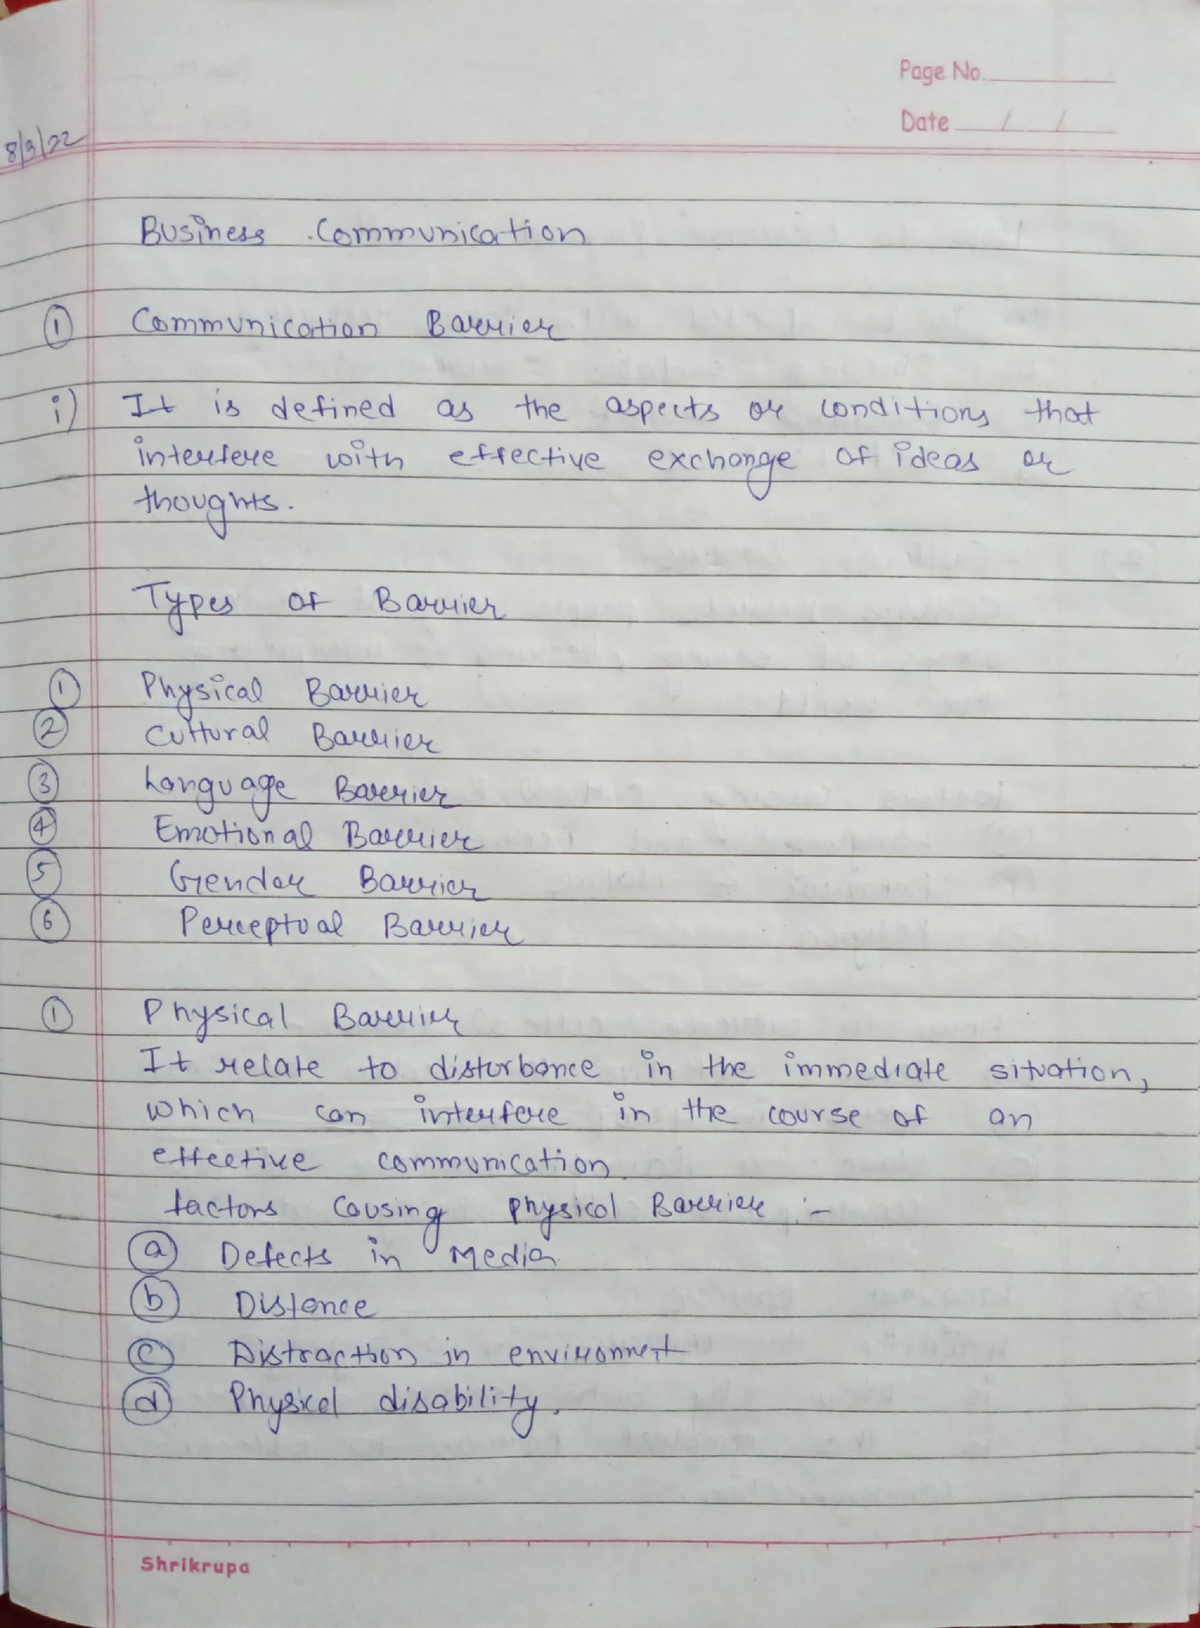 Page No.
Date / /
8/3/22
Business Communication
① Communication Barrier
i) It is defined as the aspects or conditions that
interfere with effective exchange of ideas or
thoughts.
Types of Barrier
① Physical Barrier
② Cultural Barrier
③ Language Barrier
④ Emotional Barrier
⑤ Gender Barrier
⑥ Perceptual Barrier
① Physical Barrier
It relate to disturbance in the immediate situation,
which can interfere in the course of an
effective communication
factors causing physical Barrier :-
ⓐ Defects in Media
ⓑ Distance
ⓒ Distraction in environment
ⓓ Physical disability.
Shrikrupa